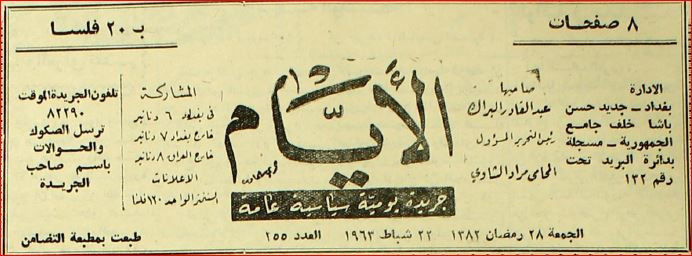 ٨ صفحات
بـ ٢٠ فلسا
الادارة
بغداد ـ جديد حسن
باشا خلف جامع
الجمهورية ـ مسجلة
بدائرة البريد تحت
رقم ١٣٢
صاحبها
عبدالقادر البراك
رئيس التحرير المسؤول
المحامي مراد الشاوي
الأيام
جريدة يومية سياسية عامة
المشاركة
في بغداد ٦ دنانير
خارج بغداد ٧ دنانير
خارج العراق ٨ دنانير
الاعلانات
السنتمتر الواحد ١٢٠ فلسا
تلفون الجريدة الموقت
٨٢٢٩٠
ترسل الصكوك
والحوالات
باسم صاحب
الجريدة
الجمعة ٢٨ رمضان ١٣٨٢
٢٢ شباط ١٩٦٣
العدد ٢٥٥
طبعت بمطبعة التضامن